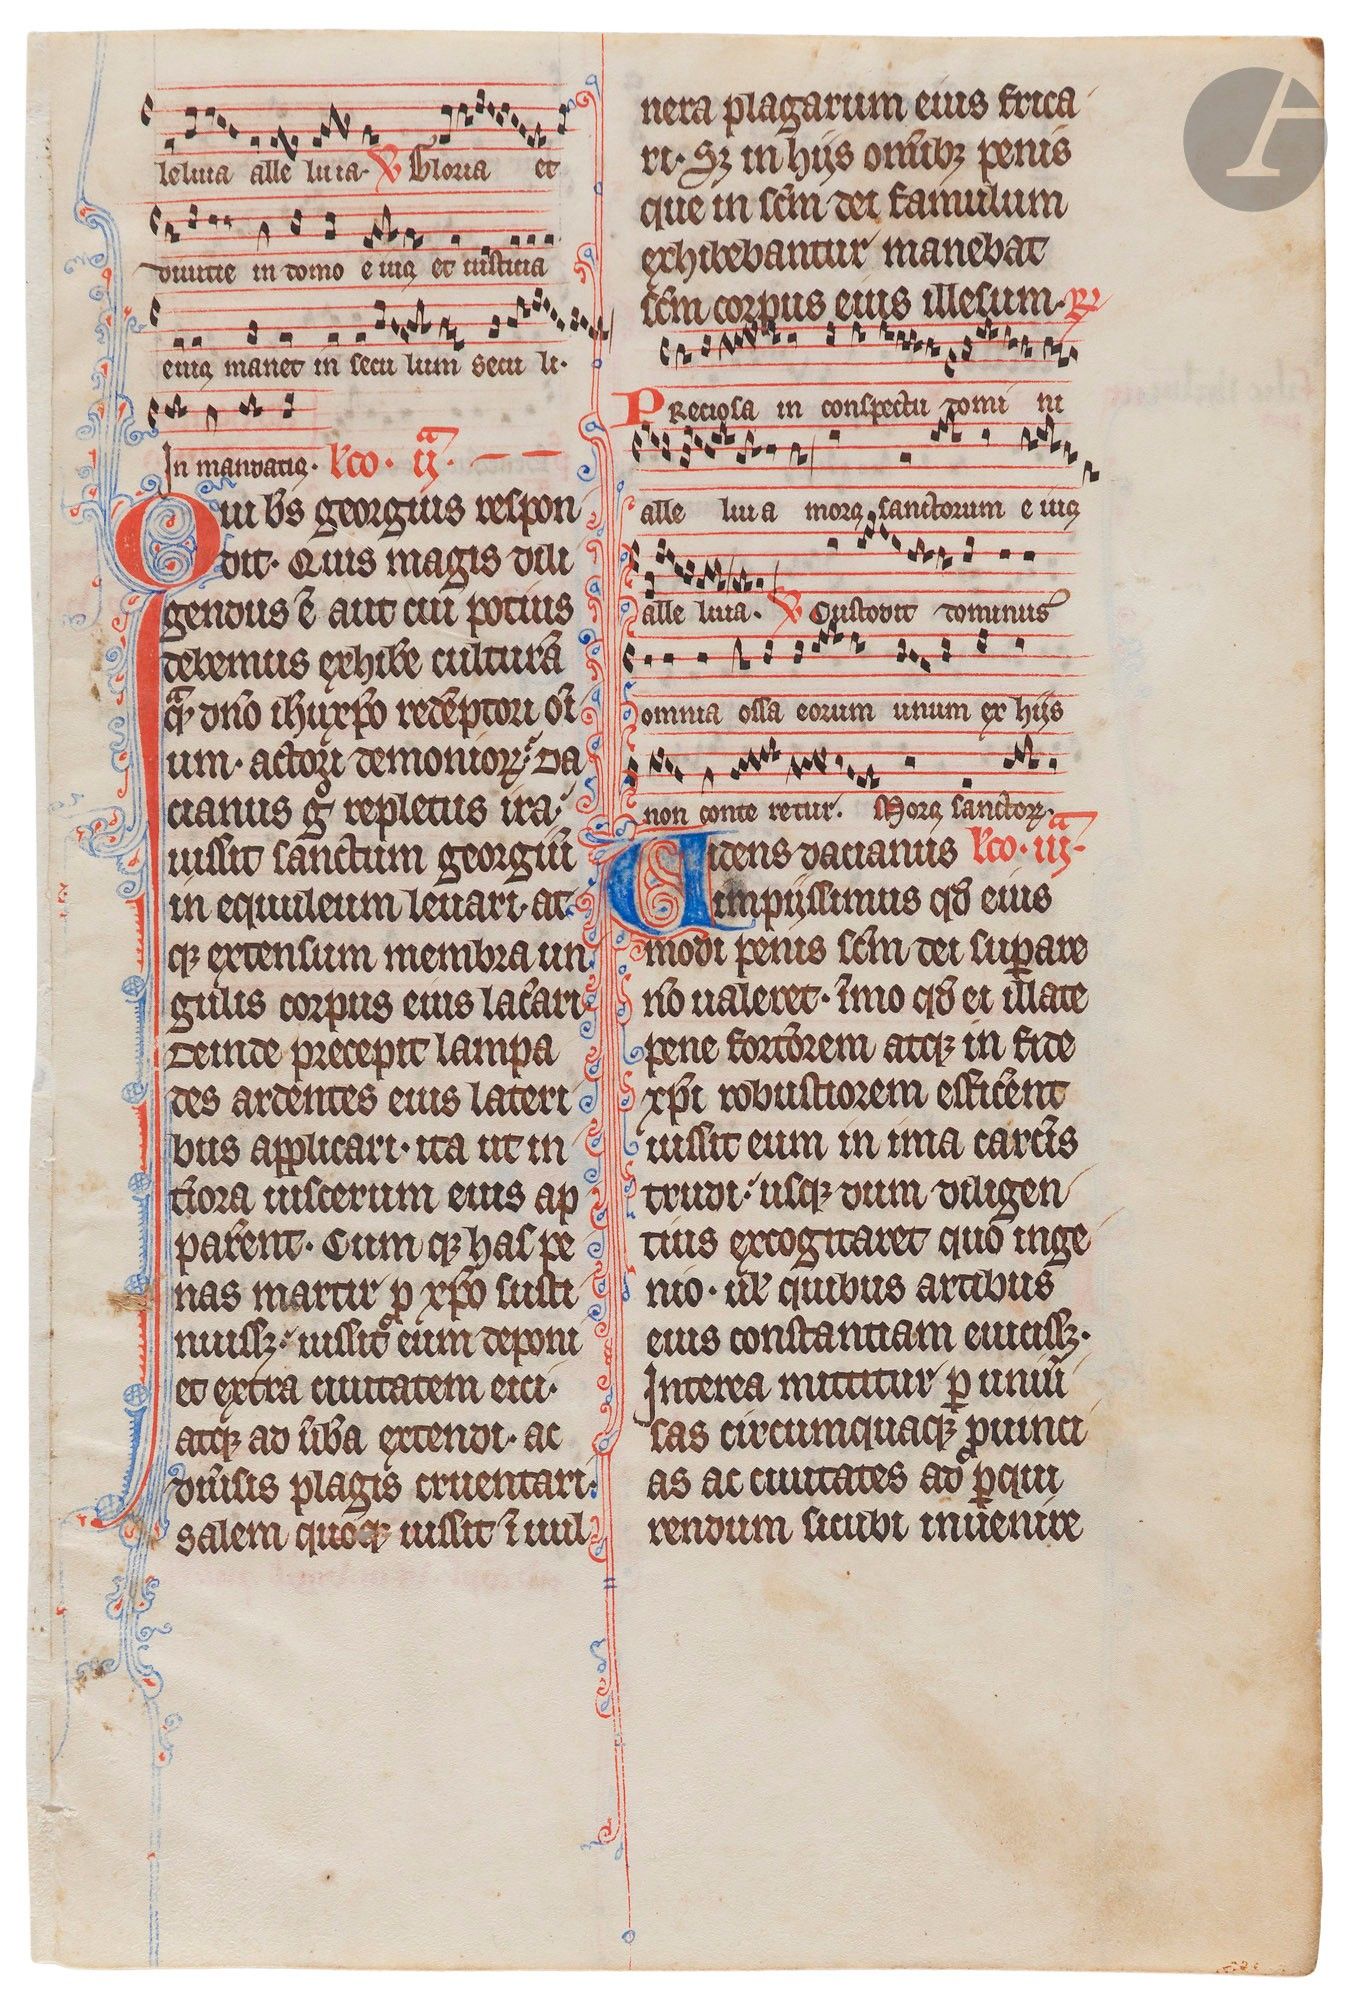 leluia alle luia. V Gloria et
diuitie in domo eius et iusticia
eius manet in secu lum secu li.
In mandatis. lc̄o. ijᵃ.
Cui bs̄ georgius respon
dit. Quis magis dili
gendus ē aut cui potius
debemus exhibe culturā
qᵃ dn̄o ihūxp̄o redēptori oī
um. actori demonioꝝ. Da
cianus gͦ repletus ira.
iussit sanctum georgiū
in equuleum leuari. at
qꝫ extensum membra un
gulis corpus eius lac̄ari
Deinde precepit lampa
des ardentes eius lateri
bus applicari. ita ut in
t̄iora uiscerum eius ap
par̄ent. Cum qꝫ has pe
nas martir ꝓ xp̄o susti
nuissꝫ. iussit eum deponi
et extra ciuitatem eici.
atqꝫ ad ūb̄a extendi. ac
diūsis plagis cruentari.
salem quoqꝫ iussit ī uul
nera plagarum eius frica
ri. Sꝫ in hijs om̄ibꝫ penis
que in sc̄m dei famulum
exhibebantur manebat
sc̄m corpus eius illesum. ℟
Preciosa in conspectu domi ni
alle luia mors sanctorum eius
alle luia. V Custodit dominus
omnia ossa eorum unum ex hijs
non conte retur. Mors sanctoꝝ.
Uidens dacianus lc̄o. iijᵃ.
impijssimus qd̄ eius
modi penis sc̄m dei suꝑare
nō ualeret. īmo qd̄ ei illate
pene fortiōrem atqꝫ in fide
xp̄i robustiorem effic̄ent
iussit eum in ima carc̄is
trudi. usqꝫ dum diligen
tius excogitaret quo inge
nio. ul̄ quibus artibus
eius constantiam euicissꝫ.
Interea mittitur ꝑ uniū
sas circumquaqꝫ ꝓuinci
as ac ciuitates ad ꝑqui
rendum sicubi inuenire